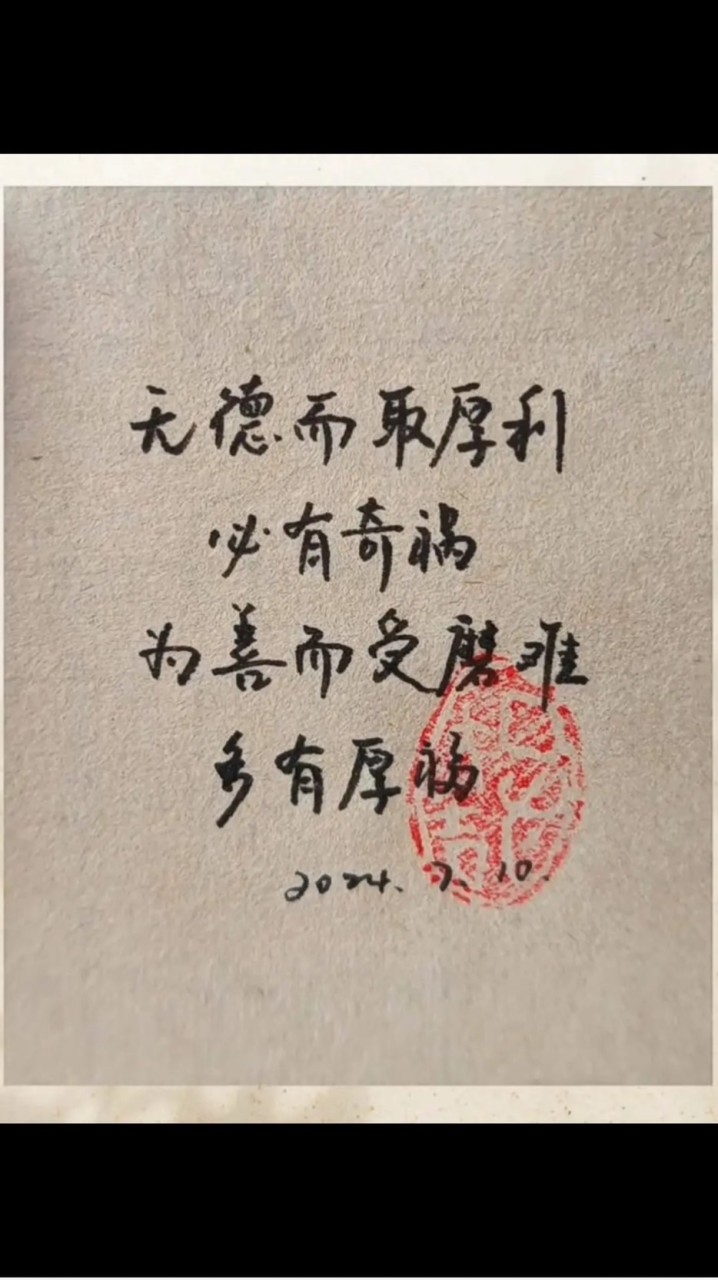 无德而取厚利
必有奇祸
为善而受磨难
多有厚福
2024.7.10.